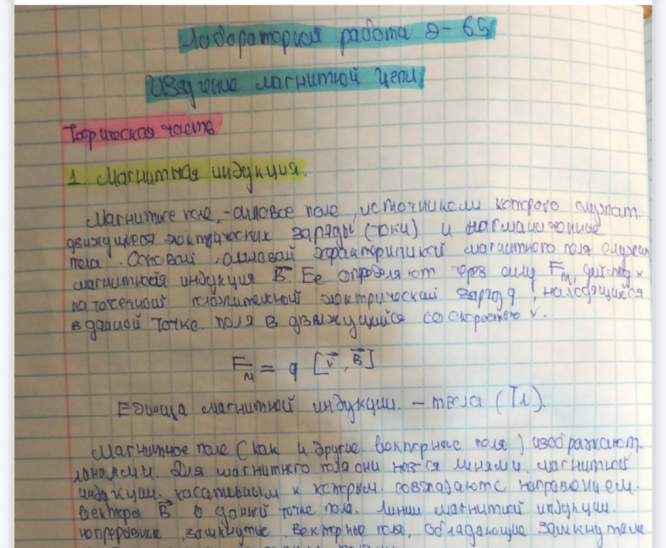 Лабораторная работа Э-65
Изучение магнитной цепи
Теоретическая часть
1. Магнитная индукция.
Магнитное поле, - силовое поле, источником которого служат
движущиеся электрических заряды (токи) и намагниченные
тела. Основой, силовой характеристикой магнитного поля служит
магнитная индукция B. Ее определяют через силу Fм,
на точечной положительной электрический заряд q, находящиеся
в данной точке поля в движущийся со скоростью v.
Fм = q [v, B]
Единица магнитной индукции. - тесла (Тл).
Магнитное поле (как и другие векторные поля) изображают
линиями. Для магнитного поля они наз-ся линями магнитной
индукции. касательным к которым совпадают направлением.
вектора B в данной точке поля. Линии магнитной индукции
непрерывные, замкнутые векторные поля, обладающие замкнутыми